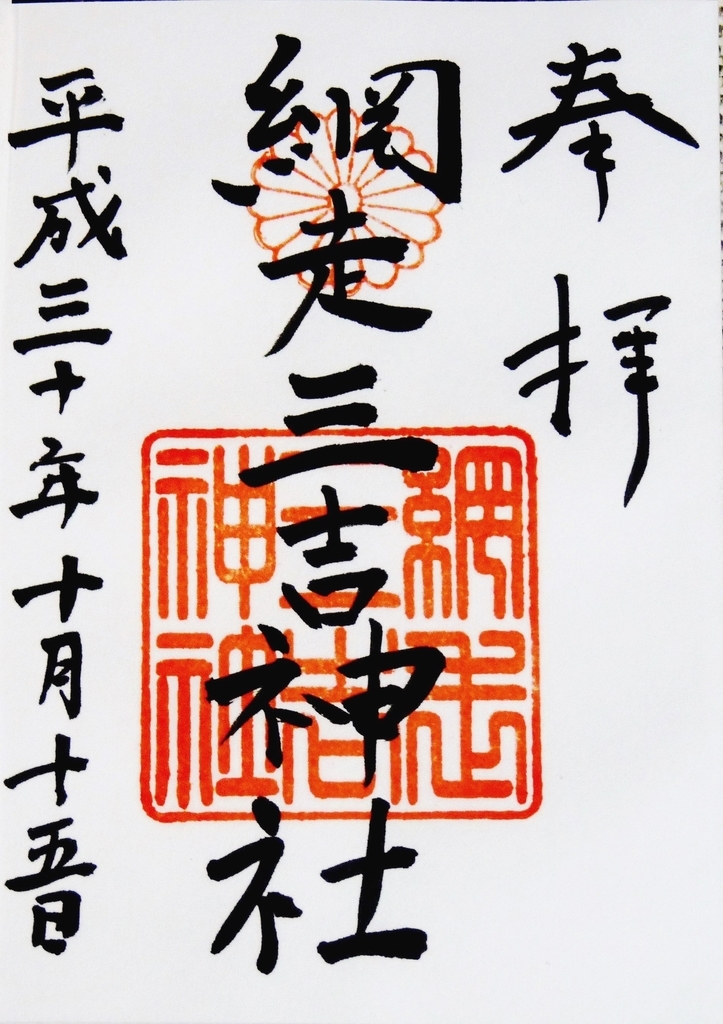 奉拝
網走三吉神社
網走三吉神社
平成三十年十月十五日